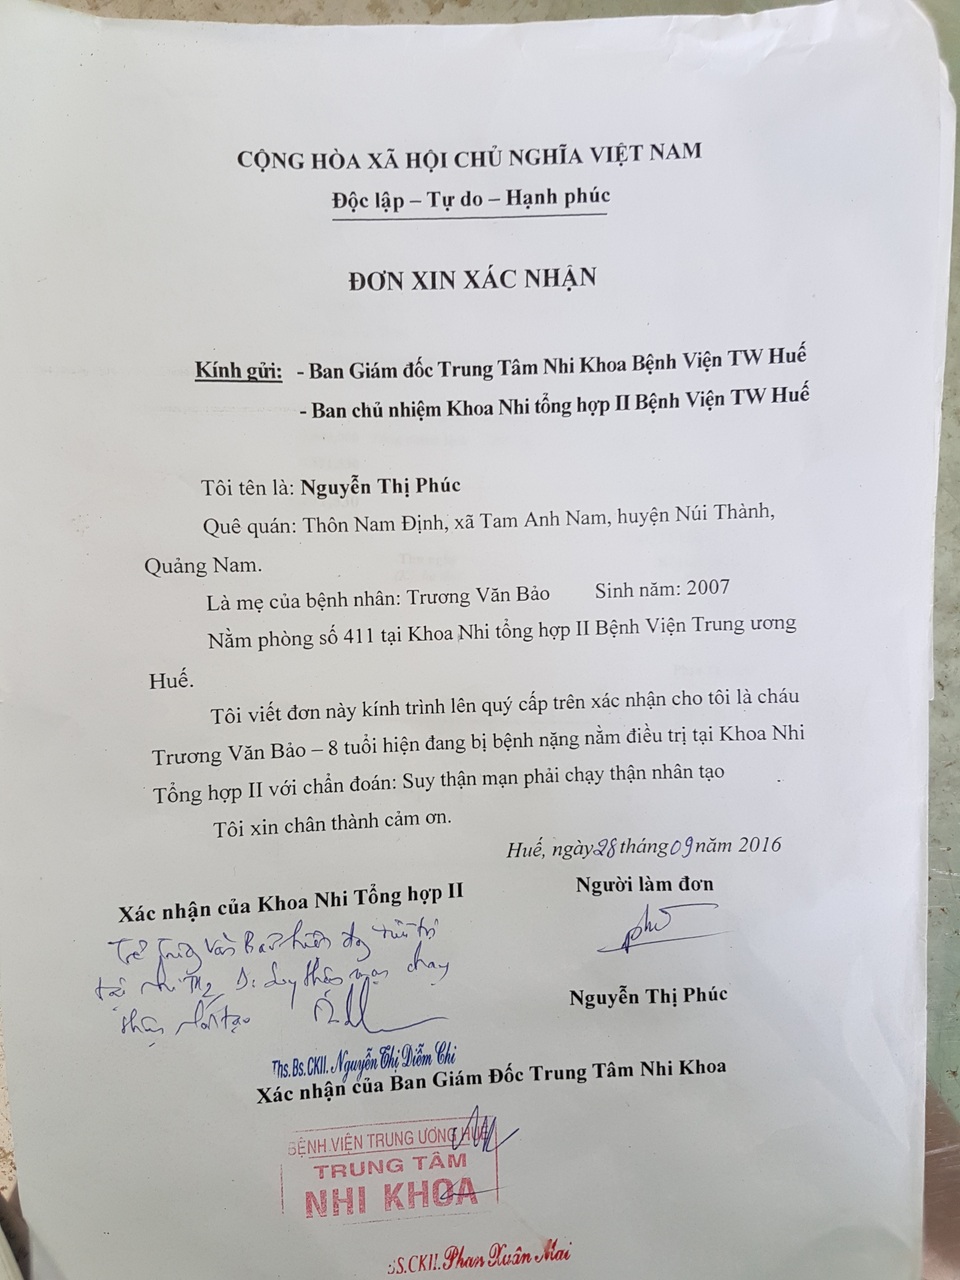 CỘNG HÒA XÃ HỘI CHỦ NGHĨA VIỆT NAM
Độc lập – Tự do – Hạnh phúc
ĐƠN XIN XÁC NHẬN
Kính gửi: - Ban Giám đốc Trung Tâm Nhi Khoa Bệnh Viện TW Huế
- Ban chủ nhiệm Khoa Nhi tổng hợp II Bệnh Viện TW Huế
Tôi tên là: Nguyễn Thị Phúc
Quê quán: Thôn Nam Định, xã Tam Anh Nam, huyện Núi Thành,
Quảng Nam.
Là mẹ của bệnh nhân: Trương Văn Bảo Sinh năm: 2007
Nằm phòng số 411 tại Khoa Nhi tổng hợp II Bệnh Viện Trung ương
Huế.
Tôi viết đơn này kính trình lên quý cấp trên xác nhận cho tôi là cháu
Trương Văn Bảo – 8 tuổi hiện đang bị bệnh nặng nằm điều trị tại Khoa Nhi
Tổng hợp II với chẩn đoán: Suy thận mạn phải chạy thận nhân tạo
Tôi xin chân thành cảm ơn.
Huế, ngày 28 tháng 09 năm 2016
Xác nhận của Khoa Nhi Tổng hợp II
Người làm đơn
Trẻ Trương Văn Bảo hiện đang điều trị
tại Nhi TH2 D: Suy thận mạn chạy
thận nhân tạo
Nguyễn Thị Phúc
Ths.Bs.CKII. Nguyễn Thị Diễm Chi
Xác nhận của Ban Giám Đốc Trung Tâm Nhi Khoa
BỆNH VIỆN TRUNG ƯƠNG HUẾ
TRUNG TÂM
NHI KHOA
BS.CKII. Phan Xuân Mai